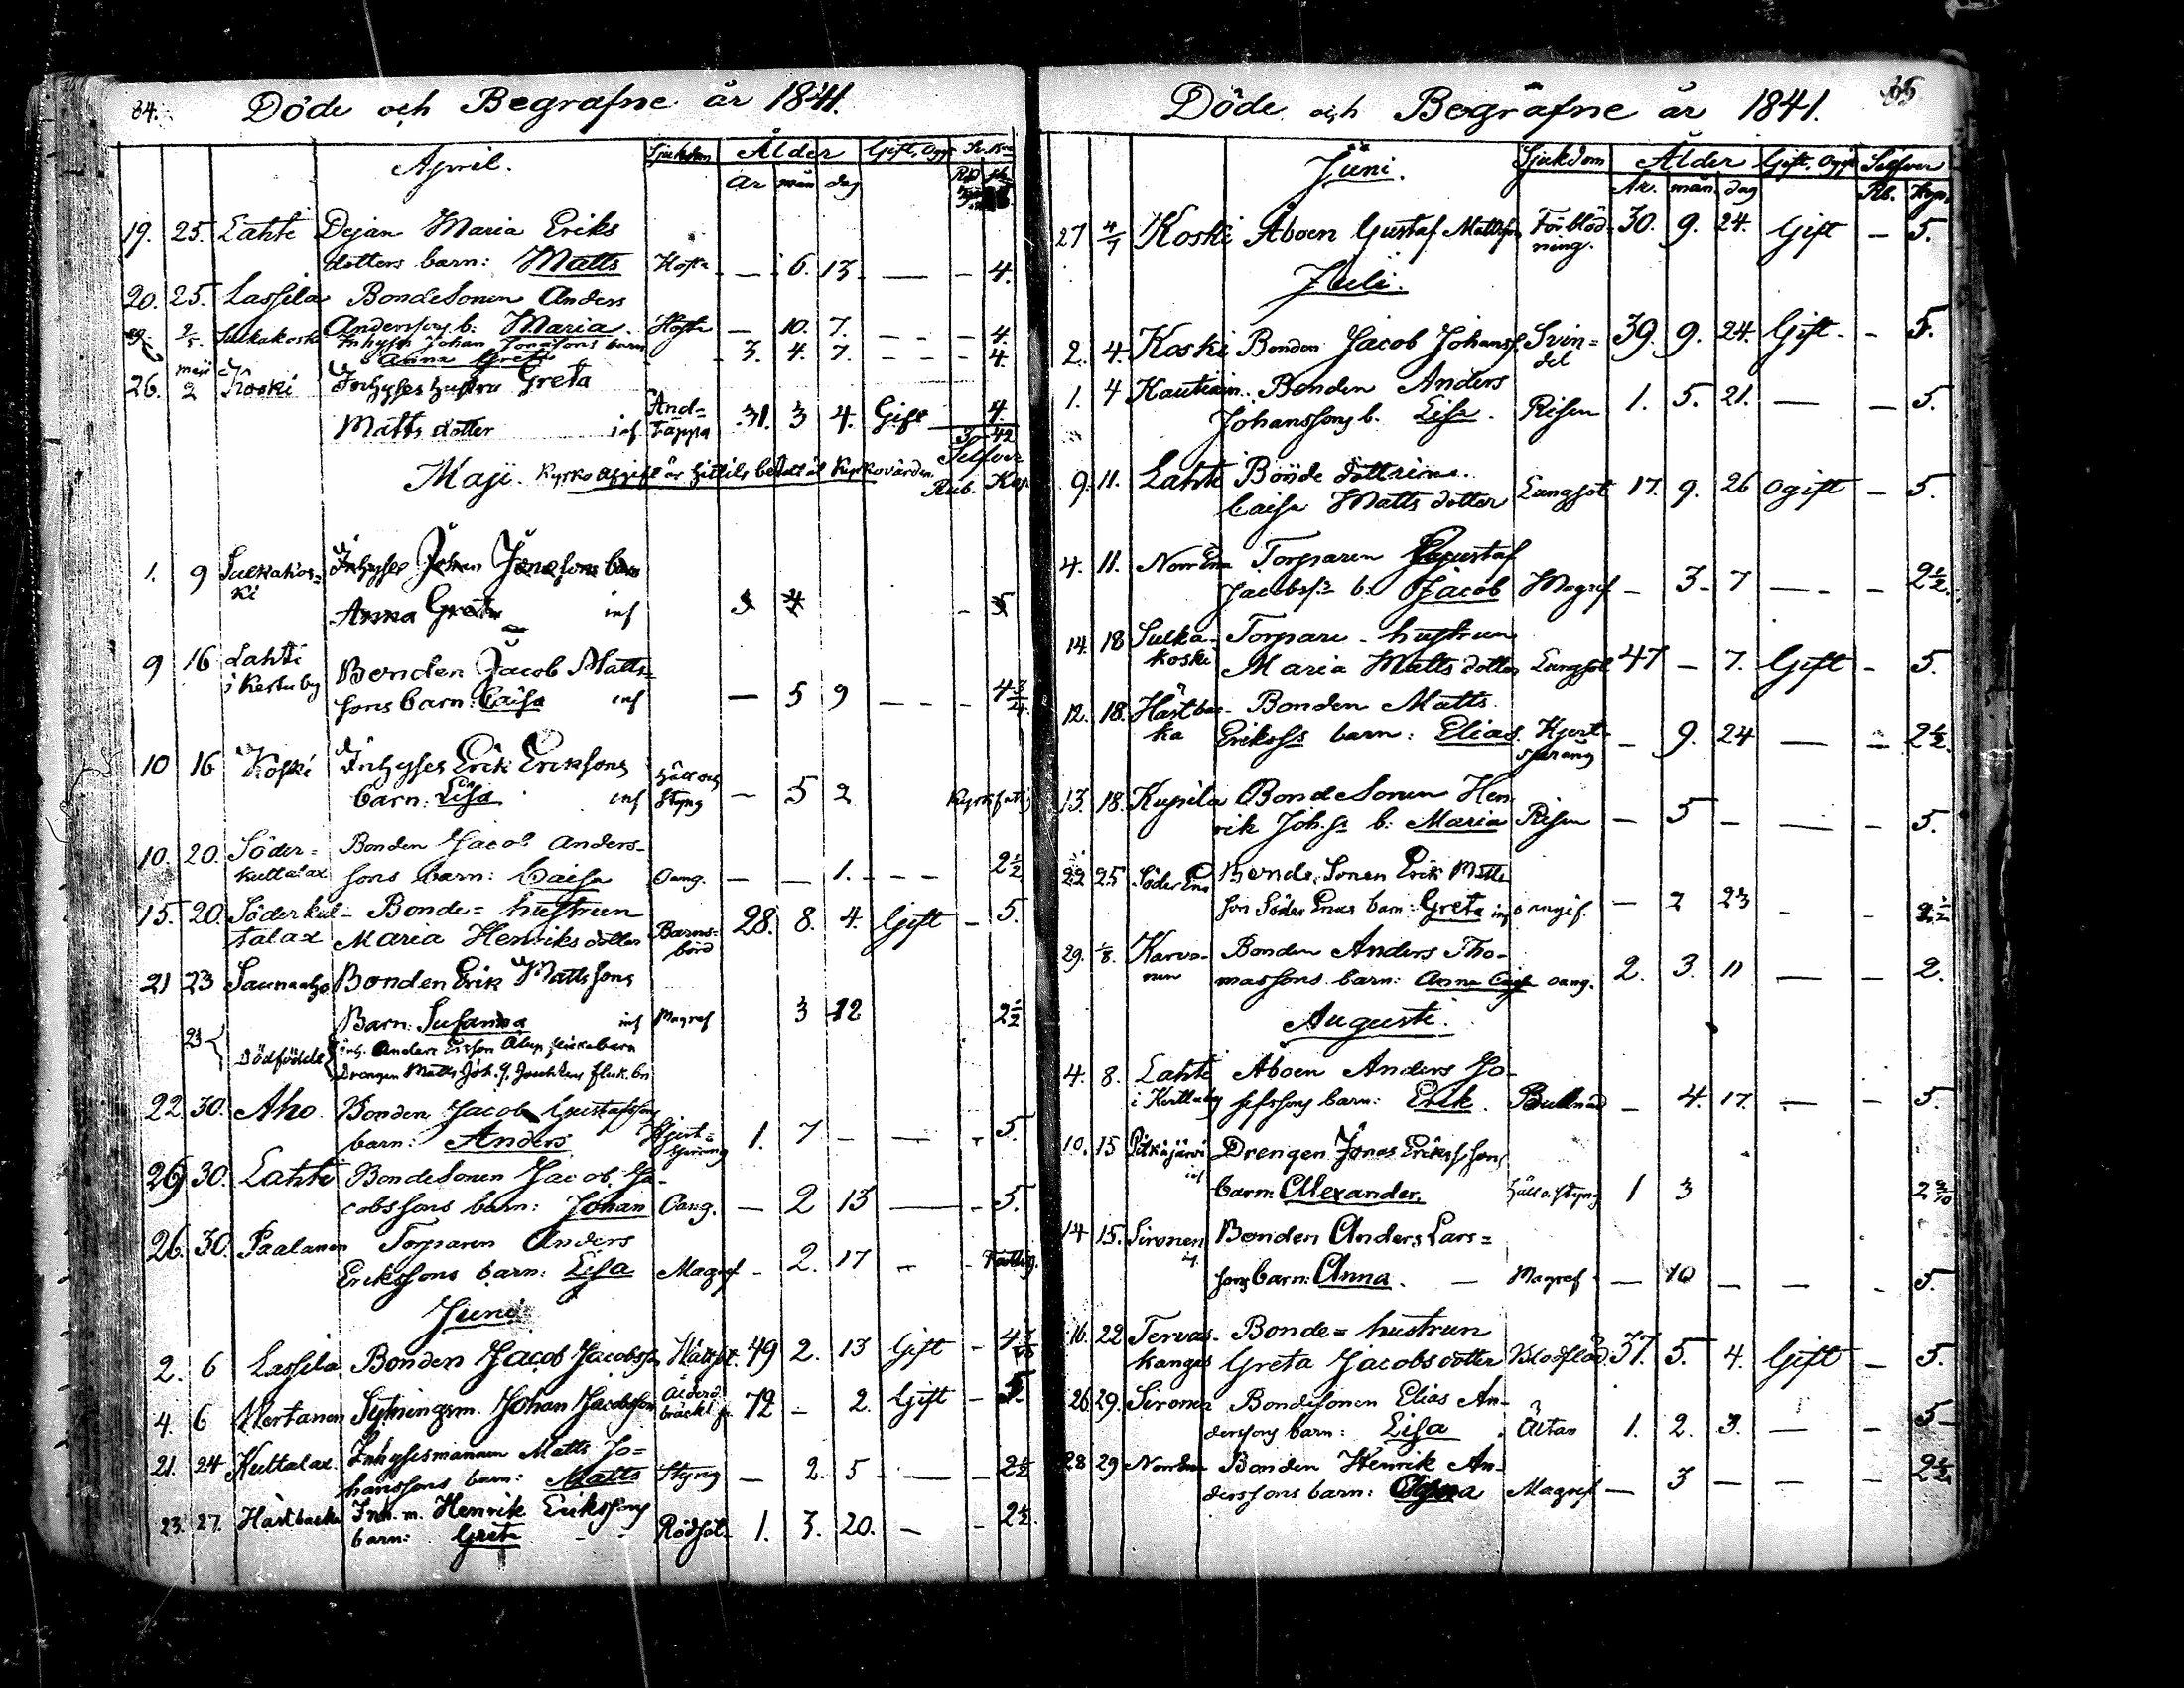 34.
Döde och Begrafne år 1841.
April. Sjukdom Ålder Gift, Ogg
år mån dag
19. 25. Lahti Dejan Maria Eriks
dotters barn: Matts Hosta — 6. 13 — – 4.
20. 25. Lassila Bondesonen Anders
Anderssons b: Maria Hosta — 10. 7. – – – 4.
2/5. Sulkakoski Inhyses Johan Jonassons barn
Anna Greta 3. 4. 7. – – – 4.
26. maji 2 Koski Inhyses hustru Greta
Matts dotter inf And= täppa 31. 3 4. Gift 4.
Maji. Kyrko afgift är hittils betalt åt Kyrkovärden
Selfver
Rub. Kop.
1. 9 Sulkakos= ki Inhyses Johan Jonassons barn
Anna Greta inf 3 4 – 5
9 16 Lahti i Kertuby Bonden Jacob Matts=
sons barn: Caisa inf — 5 9 – – – 4 3/4
10 16 Koski Inhyses Erik Eriksons
barn: Lisa inf Håll och Styng — 5 2
10. 20. Söder= kultalax Bonden Jacob Anders-
sons barn: Caisa Oang. — — 1. – – – 2 1/2
15. 20. Söderkul- Bonde= hustrun
talax Maria Henriks dotter Barns= börd 28. 8. 4. Gift – 5.
21 23 Saunaaho Bonden Erik Mattssons
Barn: Susanna inf Magref 3 12 2 1/2
Dödfödde Drengen Matts Joh.
22 30. Aho Bonden Jacob Gustafssons
barn: Anders Hjert= spräng 1. 7 – — – 5.
26 30. Lahti Bondesonen Jacob Ja-
cobssons barn: Johan Oang. — 2 13 — – 5.
26. 30. Paalanen Torparen Anders
Erikssons barn: Lisa Magref – 2. 17 – – Fattig.
Juni
2. 6 Lassila Bonden Jacob Jacobsson 49 2. 13 Gift –
4. 6 Wertanen Sytningsm. Johan Jacobsson Ålderd. bräckl. 72 – 2. Gift – 5.
21. 24 Kultalax Inhysesmannen Matts Jo=
hanssons barn: Matts Styng — 2. 5 — – 2 1/2
23. 27. Hästbacka Inh. m. Henrik Erikssons
barn: Greta Rödsot 1. 3. 20. – – 2 1/2
35
Döde och Begrafne år 1841.
Juni. Sjukdom Ålder Gift. Ogift Selfver
År. mån. dag Rb. Kop.
27 4/7 Koski Åboen Gustaf Mattsson Förblöd- ning. 30. 9. 24. Gift – 5.
Juli.
2. 4. Koski Bonden Jacob Johanss. Svin= del 39. 9. 24. Gift. – 5.
1. 4 Kautiain. Bonden Anders
Johanssons b. Lisa. Risen 1. 5. 21. — — 5.
9. 11. Lahti Bonde dottren
Caisa Matts dotter Lungsot 17. 9. 26 ogift – 5.
4. 11. Norr Ena Torparen Gustaf
Jacobss. b. Jacob Magref – 3 – 7 — – – 2 1/2.
14. 18 Sulka- koski Torpare - hustrun
Maria Matts dotter Lungsot 47 – 7. Gift – 5.
12. 18. Hästbac- ka Bonden Matts
Erikss barn: Elias. Hjert- spräng – 9. 24 — – 2 1/2.
13. 18. Kupila Bondesonen Hen
rik Joh.s. b: Maria Risen — 5 – — – 5.
22 25 Söder Ena Bonde Sonen Erik Matts
son Söder Enas barn: Greta inf oangif. — 2 23 – – 2 1/2
29. 1/8. Karvo- nen Bonden Anders Tho-
massons barn: Anna Caisa oang. 2. 3. 11 — – 2.
Augusti.
4. 8. Lahti i Kertuby Åboen Anders Jo-
sefssons barn: Erik. Bullnad – 4. 17. — – 5.
10. 15 Pitkäjärvi inf Drengen Jonas Erikssons
barn: Alexander. håll o. styng 1 3
14 15. Sironen Bonden Anders Lars=
sons barn: Anna. — Magref — 10 – — – 5.
16. 22 Tervas- kangas Bonde= hustrun
Greta Jacobsdotter Blodflöd. 37. 5. 4. Gift – 5.
26 29. Sironen Bondesonen Elias An-
derssons barn: Lisa Ältan 1. 2. 3. — – 5
28 29 Norrena Bonden Henrik An-
derssons barn: Magref — 3 — — – 2 1/2